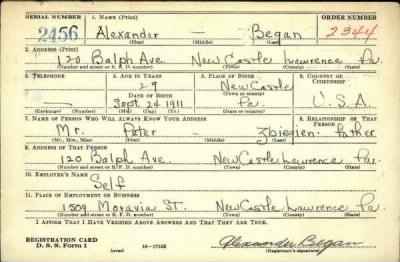 SERIAL NUMBER 1. NAME (Print) ORDER NUMBER
2456 Alexander — Began 2344
(First) (Middle) (Last)
2. ADDRESS (Print)
120 Balph Ave. New Castle Lawrence Pa.
(Number and street or R. F. D. number) (Town) (County) (State)
3. TELEPHONE 4. AGE IN YEARS 5. PLACE OF BIRTH 6. COUNTRY OF CITIZENSHIP
29 New Castle
DATE OF BIRTH (Town or county)
Sept 24 1911 Pa. U.S.A.
(Exchange) (Number) (Mo.) (Day) (Yr.) (State or country)
7. NAME OF PERSON WHO WILL ALWAYS KNOW YOUR ADDRESS 8. RELATIONSHIP OF THAT PERSON
Mr. Peter Father
(Mr., Mrs., Miss) (First) (Middle) (Last)
9. ADDRESS OF THAT PERSON
120 Balph Ave. New Castle Lawrence Pa.
(Number and street or R. F. D. number) (Town) (County) (State)
10. EMPLOYER'S NAME
Self
11. PLACE OF EMPLOYMENT OR BUSINESS
1509 Moravia St. New Castle Lawrence Pa.
(Number and street or R. F. D. number) (Town) (County) (State)
I AFFIRM THAT I HAVE VERIFIED ABOVE ANSWERS AND THAT THEY ARE TRUE.
REGISTRATION CARD
D. S. S. Form 1 (over) 16—17105 Alexander Began
(Registrant's signature)